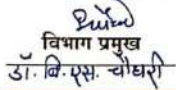 विभाग प्रमुख
डॉ. बि. एस. चौधरी